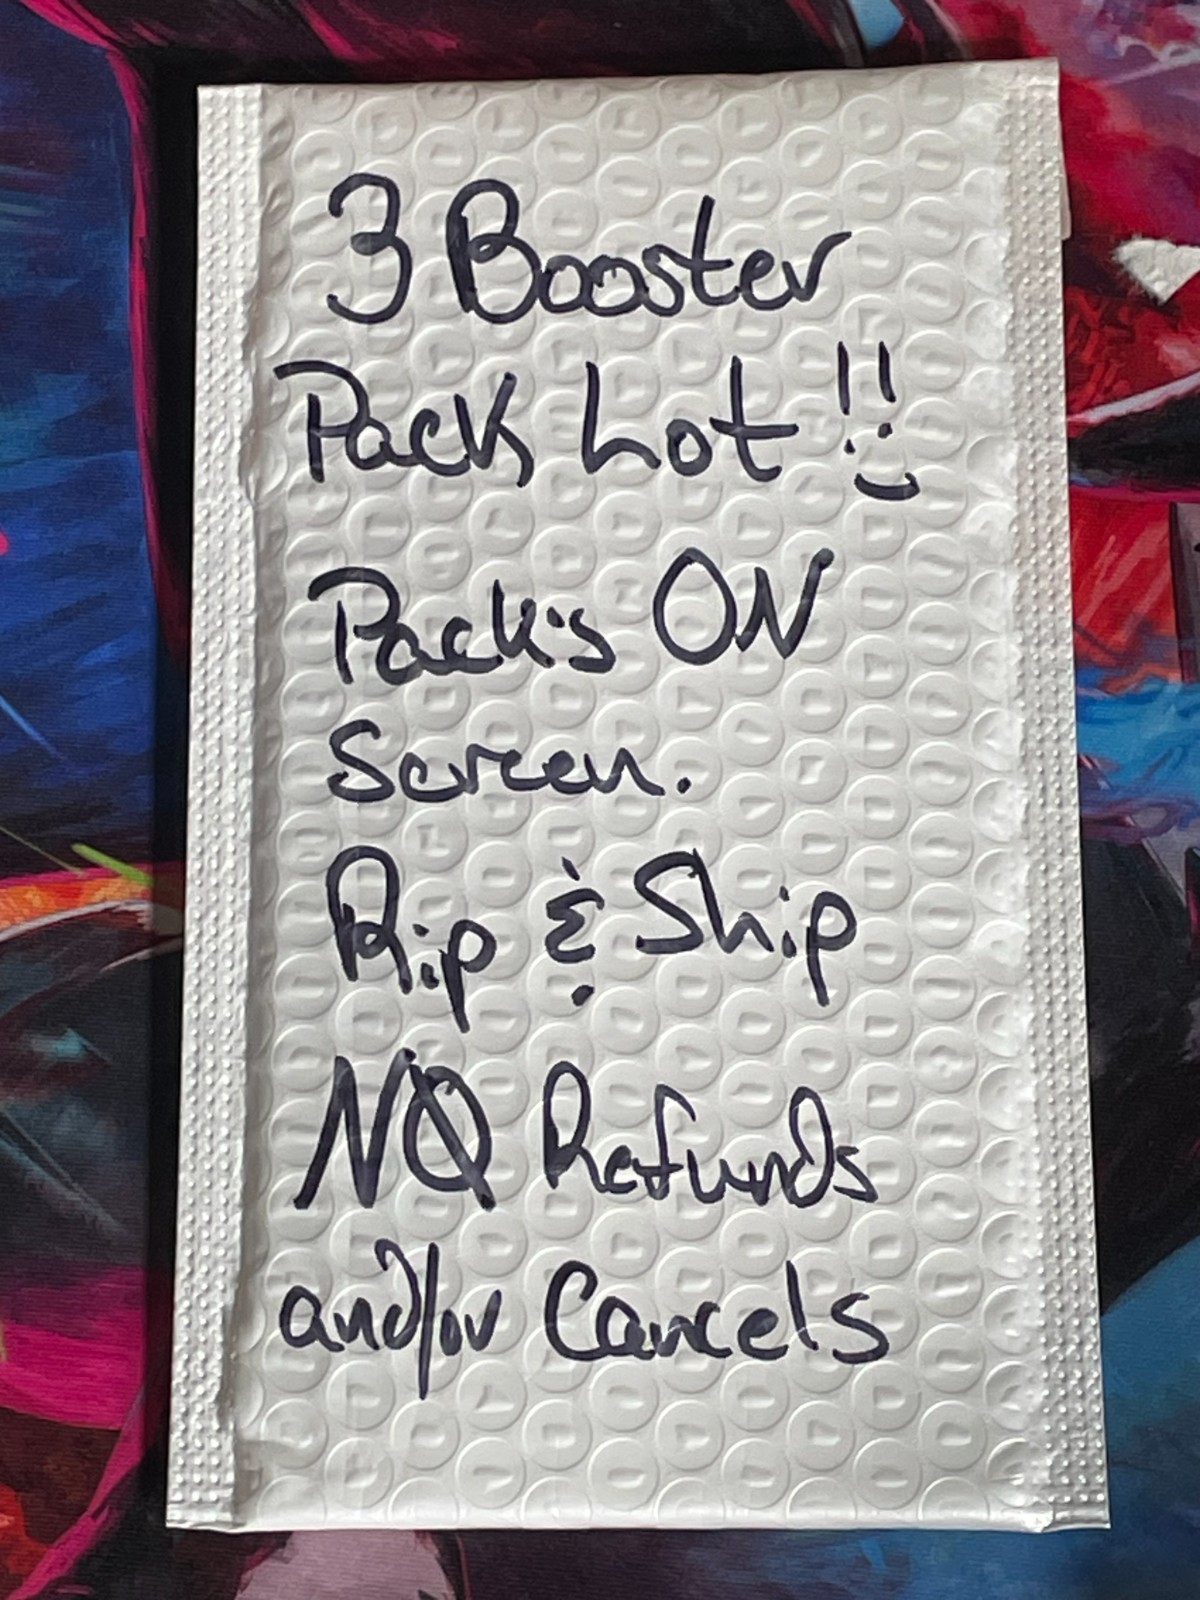 3 Booster
Pack Lot !!
Pack's ON
Screen.
Rip & Ship
NO Refunds
and/or Cancels